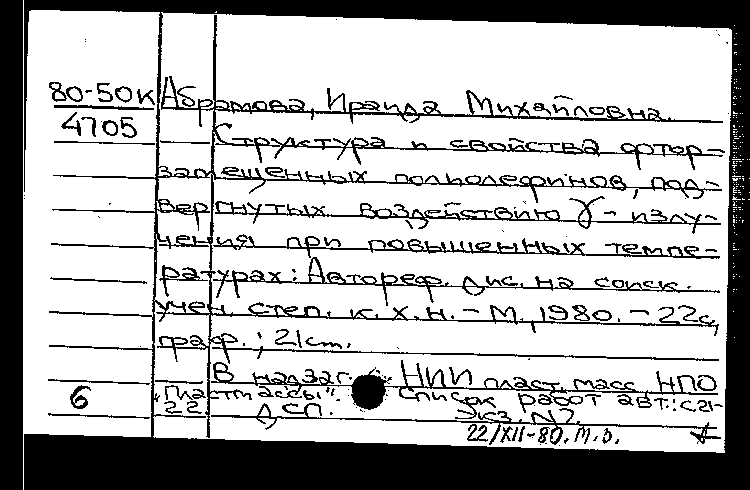 80-50к Абрамова, Ираида Михайловна.
4705 Структура и свойства фтор-
замещенных полиолефинов, под-
вергнутых воздействию γ-излу-
чения при повышенных темпе-
ратурах: Автореф. дис. на соиск.
учен. степ. к. х. н. - М., 1980. - 22с,
граф.; 21см.
В надзаг.: НИИ пласт. масс, НПО
6 "Пластмассы". Список работ авт.: с.21-
22 ДСП. Экз. №7.
22/XII-80.